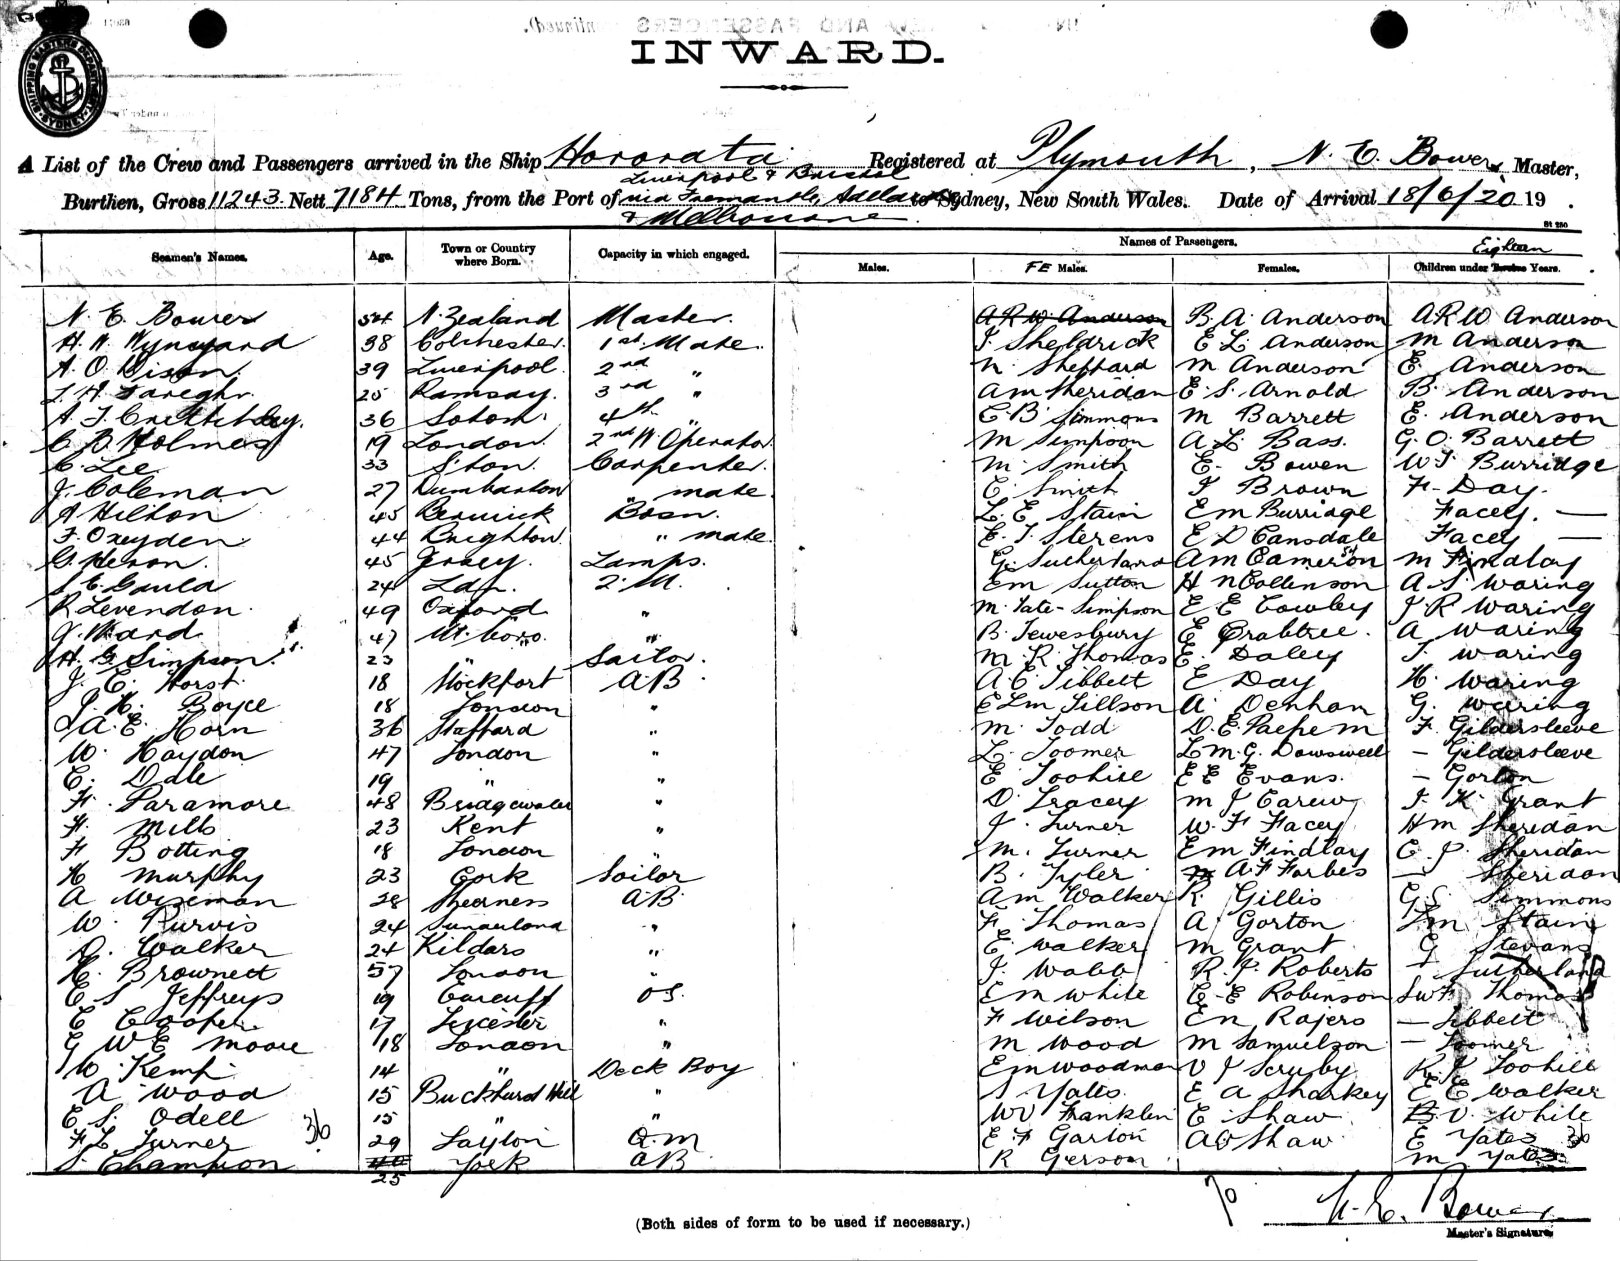 INWARD.
SHIPPING MASTER'S DEPARTMENT SYDNEY
A List of the Crew and Passengers arrived in the Ship Hororata Registered at Plymouth, N. E. Bower Master,
Liverpool & Bristol
Burthen, Gross 11243 Nett 7184 Tons, from the Port of via Fremantle, Adelaide to Sydney, New South Wales. Date of Arrival 18/6/20 19 .
& Melbourne
St 250
Seamen's Names. Age. Town or Country where Born. Capacity in which engaged. Names of Passengers.
Males. FE Males. Females. Eighteen Children under Twelve Years.
N. E. Bower 54 N. Zealand Master. A R W Anderson B. A. Anderson A R W Anderson
H. W. Wynyard 38 Colchester. 1st Mate. J. Sheldrick E L Anderson M Anderson
A. O. Dixon. 39 Liverpool 2nd " N. Sheppard M Anderson E. Anderson
25 Ramsay. 3rd " A M Sheridan E. S. Arnold B. Anderson
36 4th " E. B. Simmons M Barrett E. Anderson
C B Holmes 19 London. 2nd W Operator M Simpson A L Bass. G. O. Barrett
C. Lee 33 Carpenter. M. Smith E. Bowen W J Burridge
J. Coleman 27 Dumbarton " mate. E. Smith J Brown F. Day.
A Hilton 45 Berwick Bosn. L. E. Stain E M Burridge Facey. —
F. Oxeyden 44 Brighton. " mate. E. J. Stevens E D Cansdale Facey —
G. Heron. 45 Lamps. G. Sutherland A M Cameron M Findlay
S. E. Gauld 24 2. M. E M Sutton H N Collenson A. S. Waring
R Levendon. 49 Oxford " M. Tate-Simpson E E Cowley J. R Waring
J. Ward 47 " B. Tewesbury E Crabtree. A Waring
H. G. Simpson. 23 " Sailor. M. R. Thomas E. Daley J. Waring
J. E. Horst 18 Stockport A.B. A. E. Tibbett E Day H. Waring
J. H. Boyce 18 London " E L M Tillson A. Denham G. Waring
A. E. Horn 36 Stafford " M. Todd D. E. Paepe M F. Gildersleeve
W. Haydon 47 London " L. Toomer L M. G. Dowswell — Gildersleeve
E. Dale 19 " " E Toohill E E Evans. — Gorton
F. Paramore 48 Bridgewater " D. Tracey M J Carew J. K. Grant
F. Mills 23 Kent " J. Turner W. F Facey H M Sheridan
F Botting 18 London " M. Turner E M Findlay E. J. Sheridan
H Murphy 23 Cork Sailor B. Tyler A F Forbes — Sheridan
A Wiseman 28 Sheerness A.B. A M Walker R. Gillis G S. Simmons
W. Purvis 24 Sunderland " F. Thomas A Gorton Stain
D. Walker 24 Kildars " E. Walker M Grant G Stevans
H. Brownett 57 London " J. Webb R. J. Roberts — Sutherland
E S Jeffreys 19 Cardiff O.S. E M White C E Robinson Thomas
E Cooper 17 Leicester " F Wilson E N Rajers — Tibbett
G W E Moore 18 London " M Wood M Samuelson — Toomer
W. Kemp 14 " Deck Boy E M Woodman V J Scruby R. J Toohill
A Wood 15 Buckhurst Hill " S Yates E A Sharkey E E Walker
E S. Odell 15 " " W V Franklen E Shaw B. V. White
F L Turner 36 29 Layton Q.M E. F Garton A O Shaw E Yates 36
S. Champion 40 25 York A B R Gerson. M Yates
70 N. E. Bower
(Both sides of form to be used if necessary.)
Master's Signature.